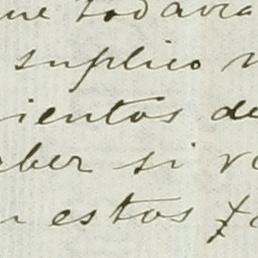 ue todavia
suplico
ientos de
aber si
estos